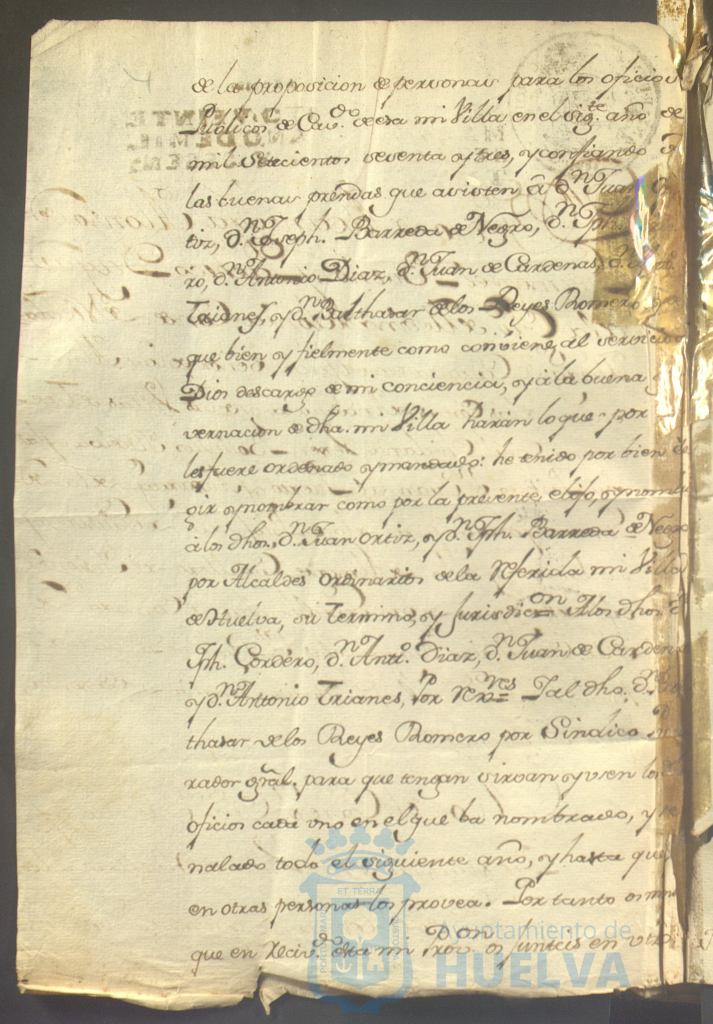 de la proposicion de personas para los oficios
Publicos de Cav.do de esa mi Villa en el sig.te año de
mil Setecientos sesenta y tres, y confiando de
las buenas prendas que asisten â D.n Juan
tiz, D.n Joseph. Barreda de Negro, D.n Jph.
ro, D.n Antonio Diaz, D.n Juan de Cardenas, D.n
Trianes, y D.n Balthasar de los Reyes Romero
que bien y fielmente como conviene al servicio
Dios descargo de mi conciencia, y à la buena
vernacion de dha. mi Villa haràn lo que por
les fuere ordenado y mandado: he tenido por bien
gir y nombrar como por la presente elijo, y nom
à los dhos. D.n Juan Ortiz, y D.n Jph. Barreda de Negro
por Alcaldes ordinarios de la referida mi Villa
de Huelva, su Termino, y Jurisdic.on A los dhos.
Jph. Cordero, D.n Ant.o Diaz, D.n Juan de Carden
y D.n Antonio Trianes, Por Rex.res I al dho. D.n
thasar de los Reyes Romero por Sindico
rador grãl. para que tengan sirvan y usen los
oficios cada uno en el que ba nombrado, y se
nalado todo el siguiente año, y hasta que
en otras personas los provea. Por tanto os
que en reciv.do esta mi Prov.on os junteis en
Ayuntamiento de
HUELVA